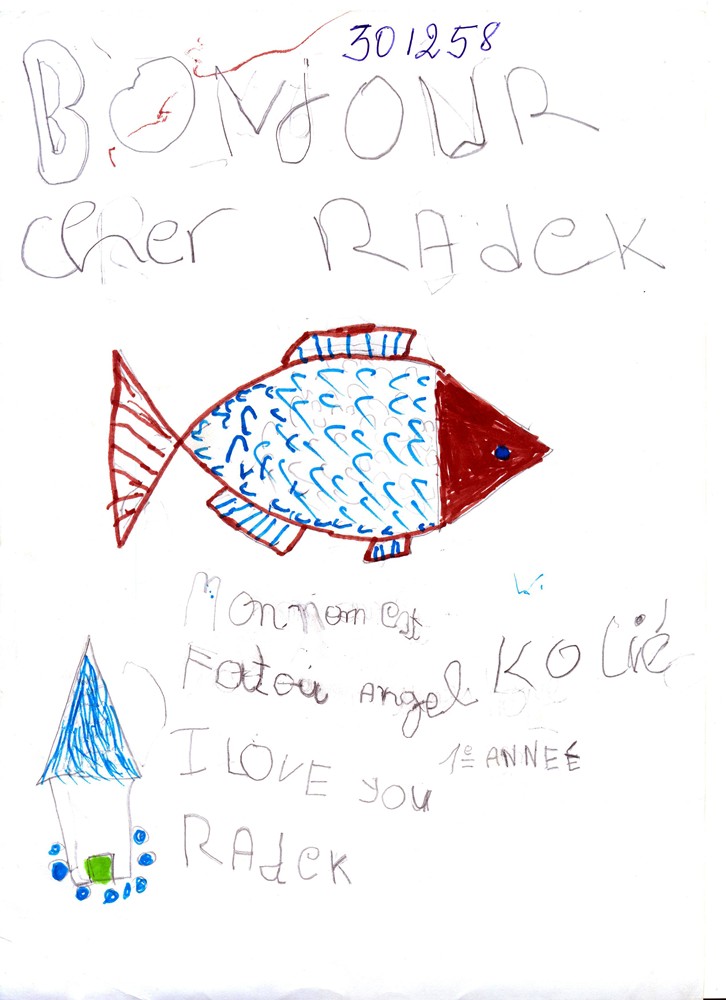 301258
BONJOUR
cher RAdek
Mon nom est
Fatou Angel KOlié
1e ANNEE
I LOVE YOU
RAdek